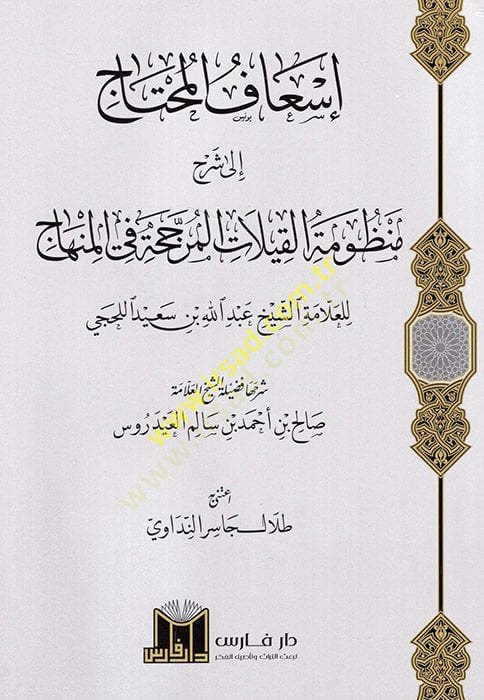 إسعاف المحتاج
إلى شرح
منظومة القيلات المرجحة في المنهاج
للعلامة الشيخ عبد الله بن سعيد اللحجي
شرحها فضيلة الشيخ العلامة
صالح بن أحمد بن سالم العيدروس
اعتنى به
طلال جاسر النداوي
دار فارس
لبعث التراث وتأصيل الفكر
دار فارس